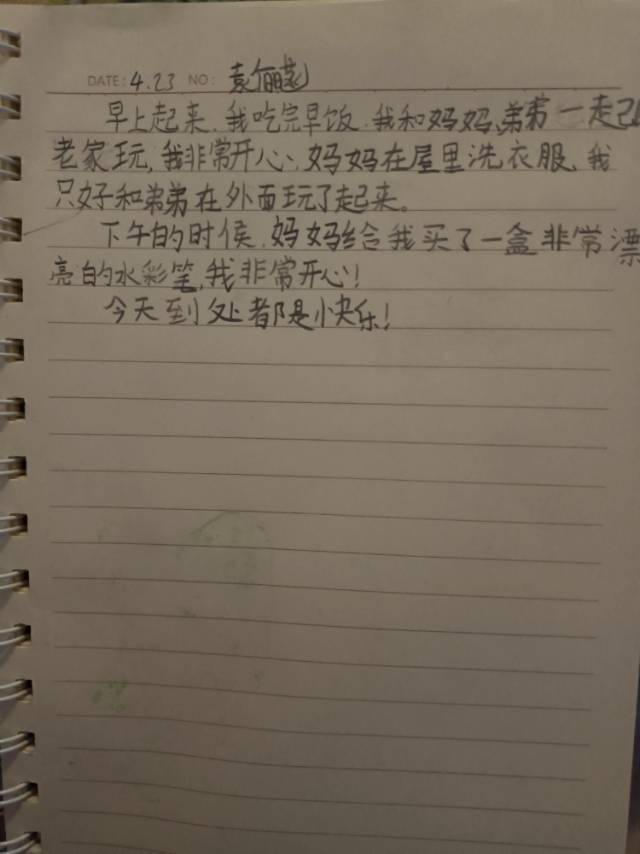 DATE: 4.23 NO: 袁俪
早上起来,我吃完早饭,我和妈妈、弟弟一走
老家玩,我非常开心、妈妈在屋里洗衣服,我
只好和弟弟在外面玩了起来。
下午的时侯,妈妈给我买了一盒非常漂
亮的水彩笔,我非常开心!
今天到处都是快乐!